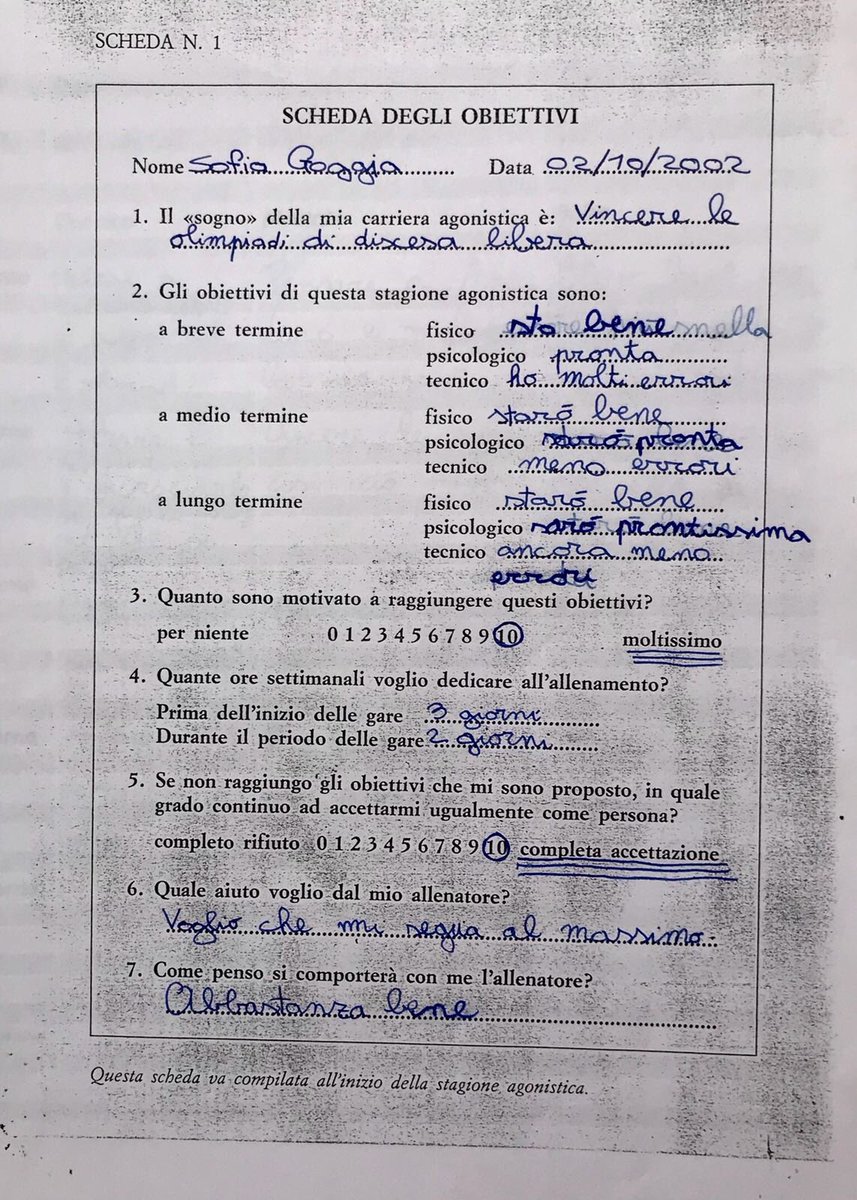 SCHEDA N. 1
SCHEDA DEGLI OBIETTIVI
Nome Sofia Goggia Data 02/10/2002
1. Il «sogno» della mia carriera agonistica è: Vincere le
olimpiadi di discesa libera
2. Gli obiettivi di questa stagione agonistica sono:
a breve termine fisico sto bene
psicologico pronta
tecnico ho molti errori
a medio termine fisico starò bene
psicologico sarò pronta
tecnico meno errori
a lungo termine fisico starò bene
psicologico sarò prontissima
tecnico ancora meno
errori
3. Quanto sono motivato a raggiungere questi obiettivi?
per niente 0 1 2 3 4 5 6 7 8 9 10 moltissimo
4. Quante ore settimanali voglio dedicare all'allenamento?
Prima dell'inizio delle gare 3 giorni
Durante il periodo delle gare 2 giorni
5. Se non raggiungo gli obiettivi che mi sono proposto, in quale
grado continuo ad accettarmi ugualmente come persona?
completo rifiuto 0 1 2 3 4 5 6 7 8 9 10 completa accettazione
6. Quale aiuto voglio dal mio allenatore?
Voglio che mi segua al massimo.
7. Come penso si comporterà con me l'allenatore?
Abbastanza bene
Questa scheda va compilata all'inizio della stagione agonistica.